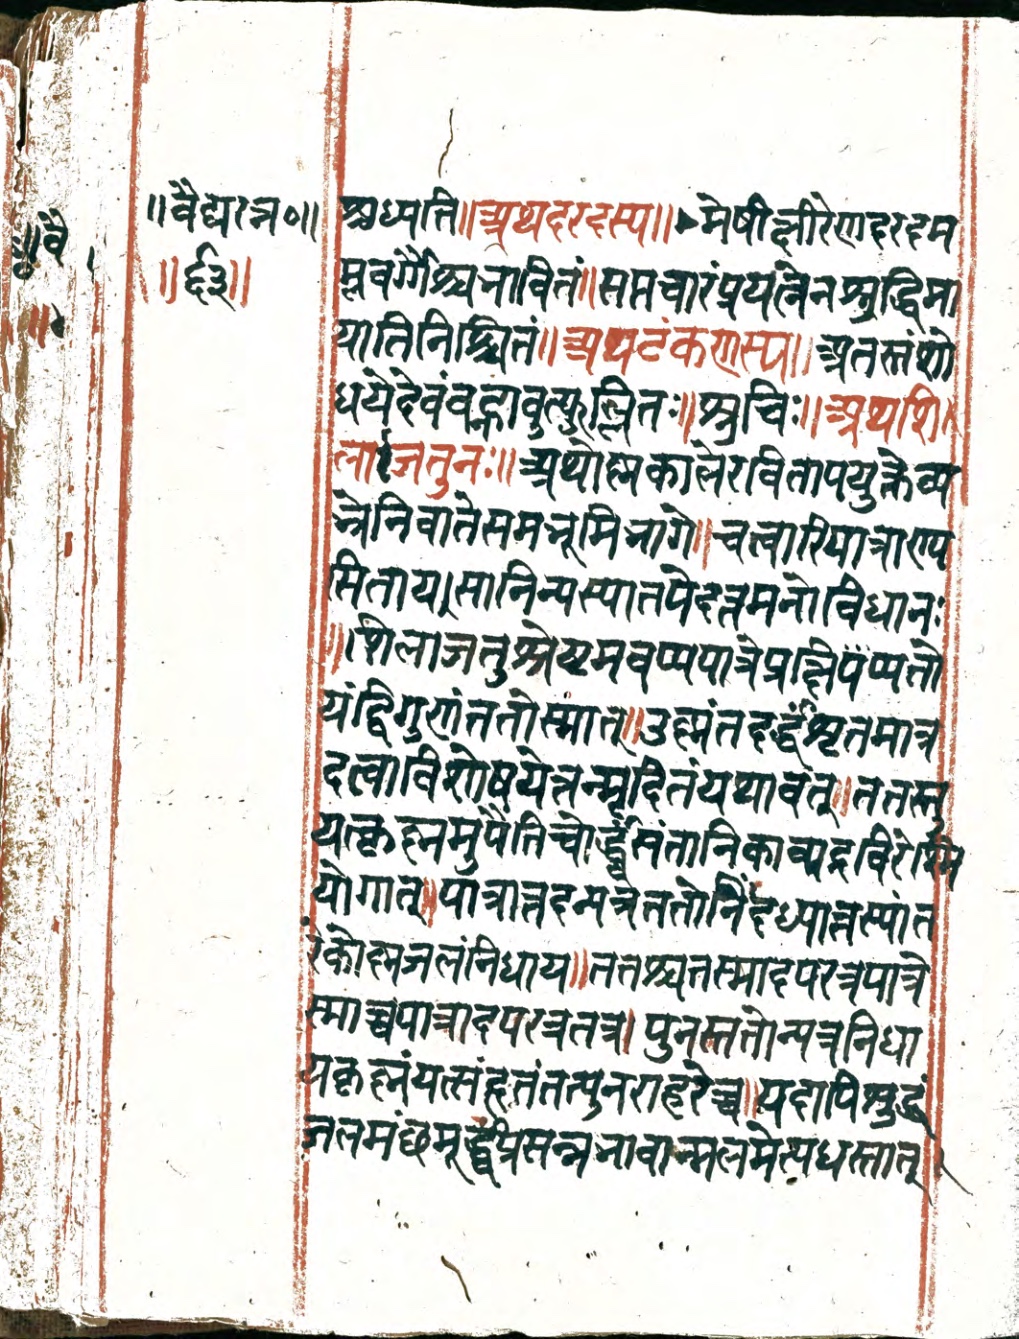 ॥वैद्यरत्न०॥
॥६३॥
शुध्यति॥अथदरदस्य॥मेषीक्षीरेणदरदम
म्लवर्गैश्चभावितं॥सप्तवारंप्रयत्नेनशुद्धिमा
यातिनिश्चितं॥अथटंकणस्य॥अतस्तंशो
धयेदेवंवह्नावुत्फुल्लितः॥शुचिः॥अथशि
लाजतुनः॥अथोष्मकालेरवितापयुक्तेव्य
भ्रेनिवातेसमभूमिभागे॥चत्वारिपात्राण्य
सितायसानिन्यस्यातपेदत्तमनोविधानः
॥शिलाजतुश्रेष्टमवप्यपात्रेप्रक्षिप्यतो
यंद्विगुणंततोस्मात्॥उष्मंतदर्द्धंशृतमात्र
दत्वाविशोषयेत्तन्मृदितंयथावत्॥ततस्तु
यत्कृह्ममुपैतिचोर्द्ध्वंसंतानिकाव्यद्रविरश्मि
योगात्॥पात्रात्तदन्यत्रततोनिदध्यात्तस्यांत
रेकोष्मजलंनिधाय॥ततश्चतस्मादपरत्रपात्रे
स्माच्चपात्रादपरत्रतत्र।पुनस्ततोन्यत्रनिधा
यकृह्मंयत्संहृतंतत्पुनराहरेच्च॥यदापिशुद्धं
जलमंछमूर्द्ध्वंप्रसन्नभावान्मलमेत्यधस्तात्।